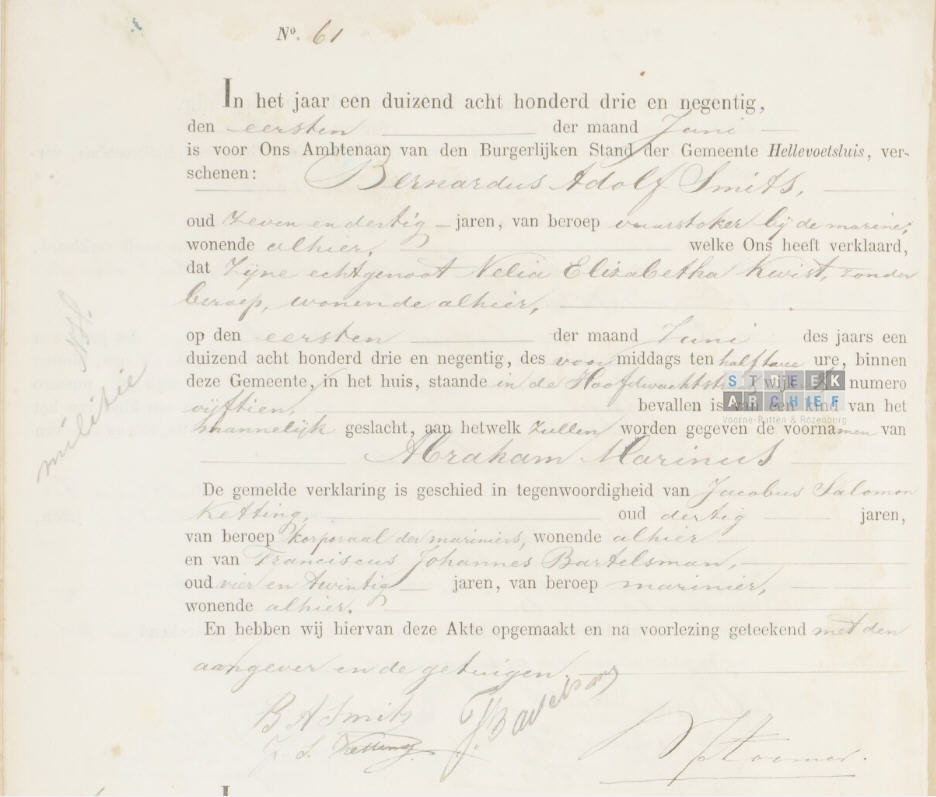 No. 61
In het jaar een duizend acht honderd drie en negentig,
den eersten der maand Juni
is voor Ons Ambtenaar van den Burgerlijken Stand der Gemeente Hellevoetsluis, ver-
schenen: Bernardus Adolf Smits,
oud zeven en dertig jaren, van beroep vuurstoker bij de marine,
wonende alhier, welke Ons heeft verklaard,
dat Zijne echtgenoot Nelia Elisabetha Kwist, zonder
beroep, wonende alhier,
op den eersten der maand Juni des jaars een
duizend acht honderd drie en negentig, des voor middags ten half twee ure, binnen
deze Gemeente, in het huis, staande in de Hoofdwachtst wijk numero
vijftien, bevallen is van een kind van het
mannelijk geslacht, aan hetwelk zullen worden gegeven de voornamen van
Abraham Marinus
De gemelde verklaring is geschied in tegenwoordigheid van Jacobus Salomon
Ketting, oud dertig jaren,
van beroep korporaal der mariniers, wonende alhier
en van Franciscus Johannes Bartelsman,
oud vier en twintig jaren, van beroep marinier,
wonende alhier.
En hebben wij hiervan deze Akte opgemaakt en na voorlezing geteekend met den
aangever en de getuigen.
B A Smits
J. S. Ketting
N.H.
militie
STREEK
ARCHIEF
Voorne-Putten & Rozenburg